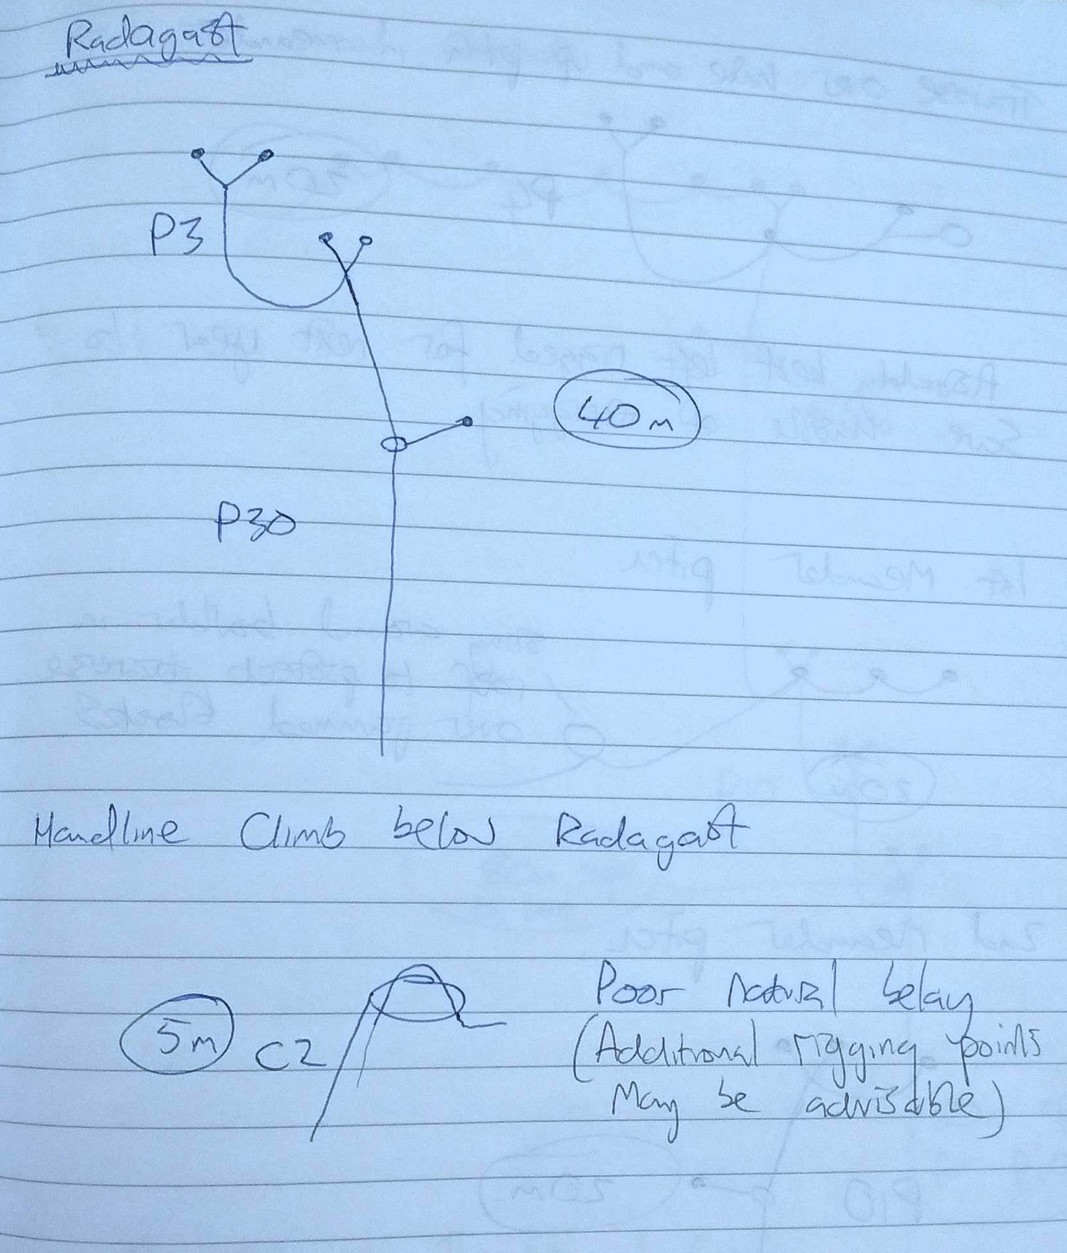 Radagast
P3
40m
P30
Handline Climb below Radagast
5m C2
Poor natural belay
(Additional rigging points
May be advisable)